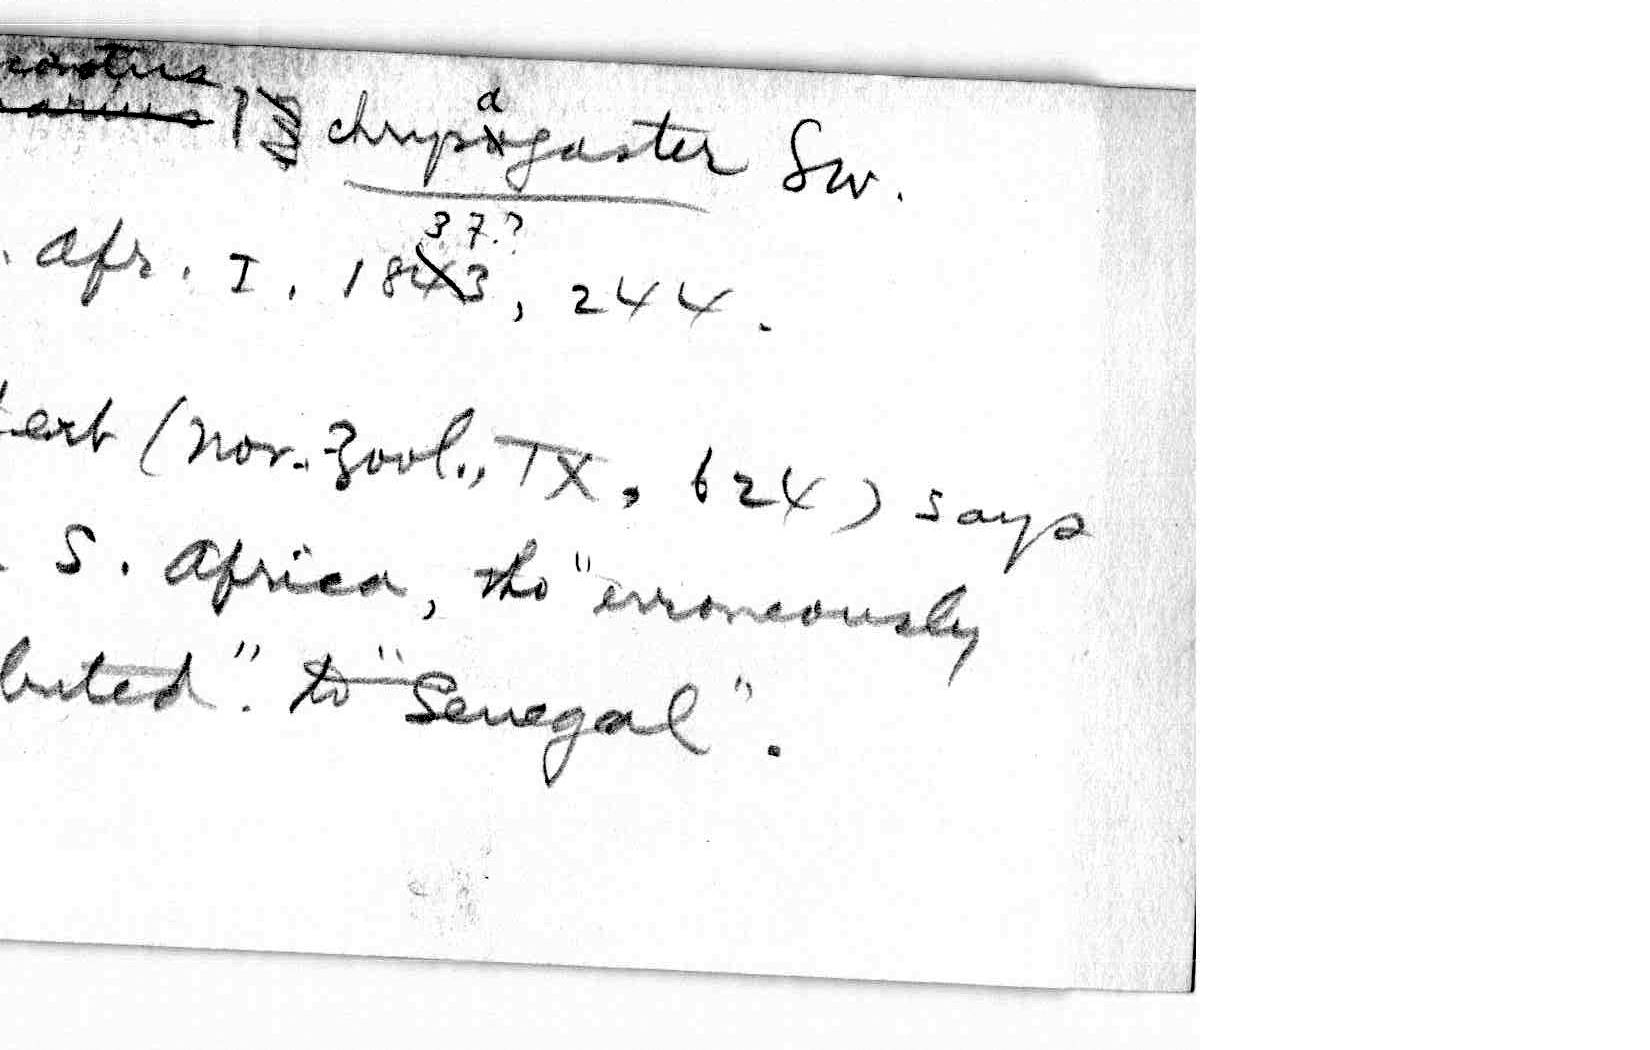 conotus
arius
chrysagaster Sw.
37.?
. Afr. I, 1843, 244.
tert (Nov. Zool., IX, 624) says
. S. Africa, tho "erroneously
buted". to "Senegal".